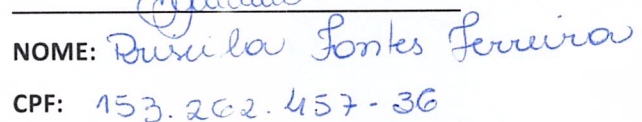 NOME: Priscila Fontes Ferreira
CPF: 153.262.457-36